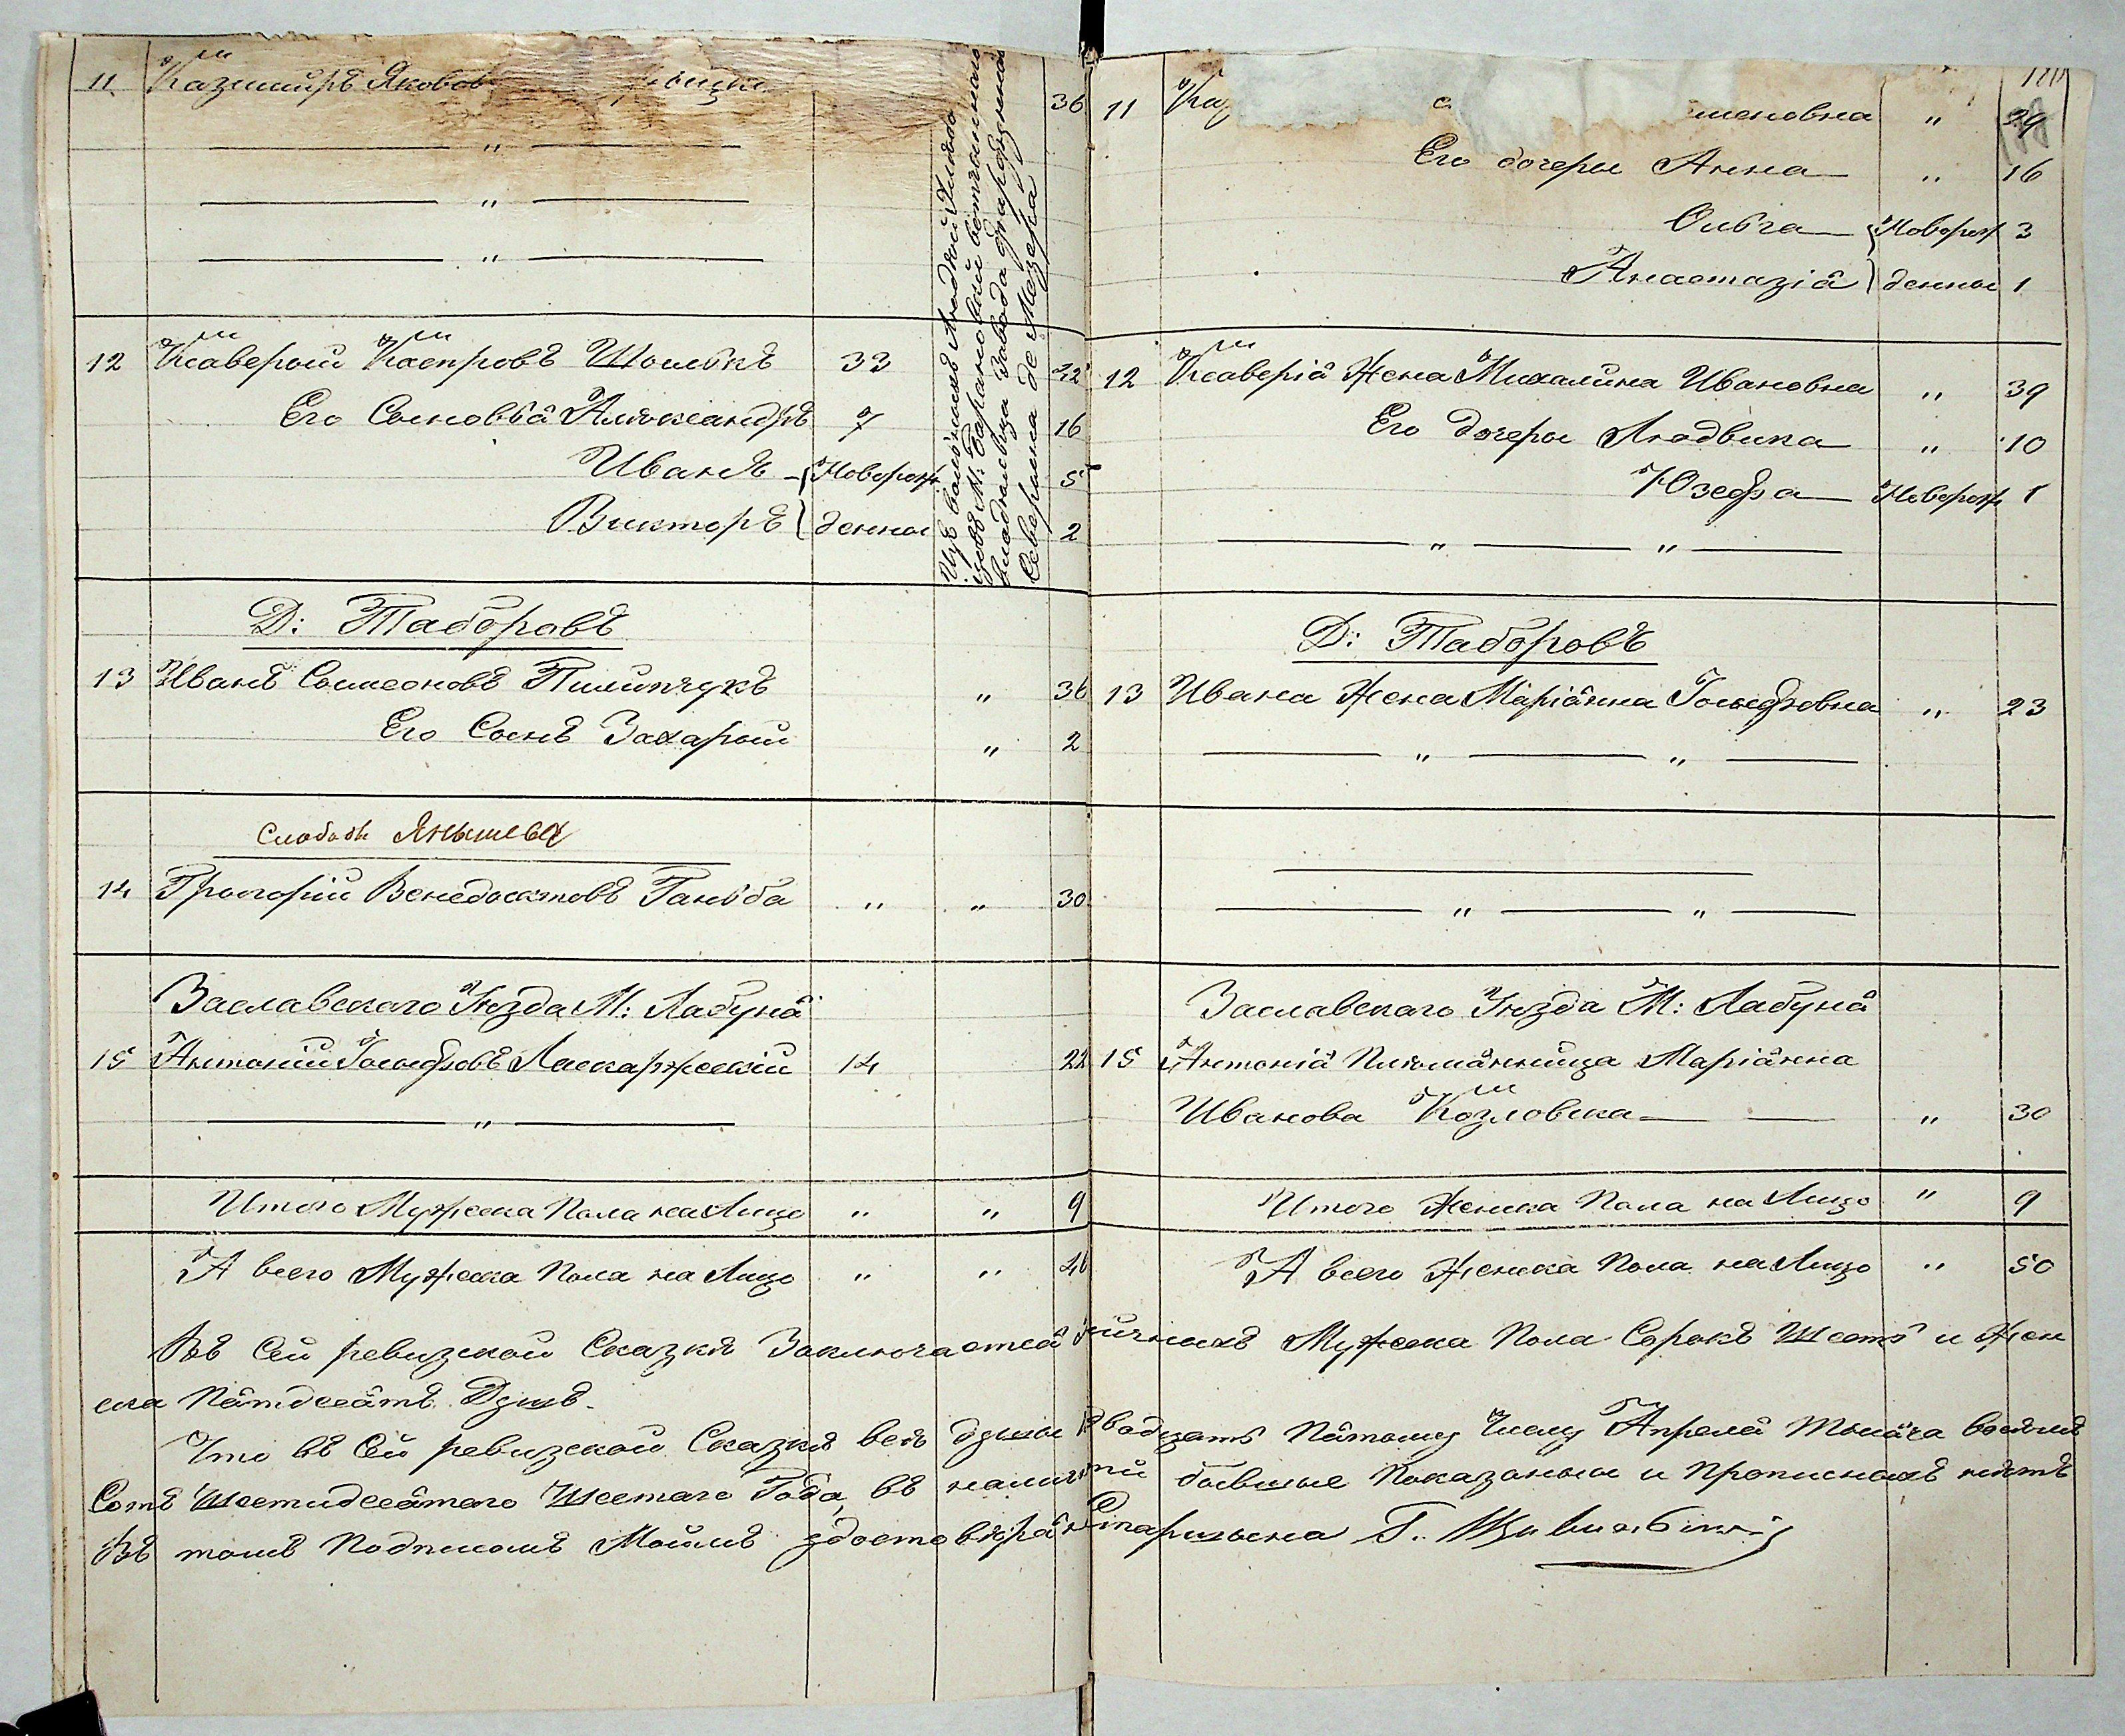 11 Казимиръ Яковов 36
— " —
— " —
— " —
12 Ксаверый Каспровъ Шолыкъ 33 42
Его Сыновья Александръ 7 16
Иванъ Новорож 5
Викторъ денные 2
Изъ вольныхъ людей
цовъ М: Барановки вотчинного
владѣльца Завода
Северина де Мезера
Д: Таборовъ
13 Иванъ Сымеоновъ Пилипчукъ " 36
Его Сынъ Захарый " 2
Слободы Янышевки
14 Григорій Венедыктовъ Ганьба " " 30
Заславскаго Уѣзда М: Лабуня
15 Антоній Іосыфовъ Ласкаржескій 14 22
— " —
Итого Мужеска Пола на Лицо " " 9
А всего Мужеска Пола на Лицо " " 46
11 Каз меновна " 29
Его дочеры Анна " 16
Ольга Новорож 3
Анастазія денные 1
12 Ксаверія Жена Михалина Ивановна " 39
Его дочеры Людвика " 10
Юзефа Новорож 1
— " — " —
Д: Таборовъ
13 Ивана Жена Маріянна Іосыфовна " 23
— " — " —
— " — " —
Заславскаго Уѣзда М: Лабуня
15 Антонія Племянница Маріянна
Иванова Козловска " 30
Итого Женска Пола на Лицо " 9
А всего Женска Пола на Лицо " 50
Въ Сей ревизской Сказкѣ Заключается личныхъ Мужеска Пола Сорокъ Шесть и Жен
ска Пятдесятъ Душъ.
Что въ Сей ревизской Сказкѣ всѣ душы Двадцать Пятому Числу Апреля Тысяча восѣмъ
Сотъ Шестидесятаго Шестаго Года, въ наличности бывшые Показаныи и Прописныхъ нѣтъ
Въ томъ Подписомъ Моимъ удостовѣряю Старшына Г.